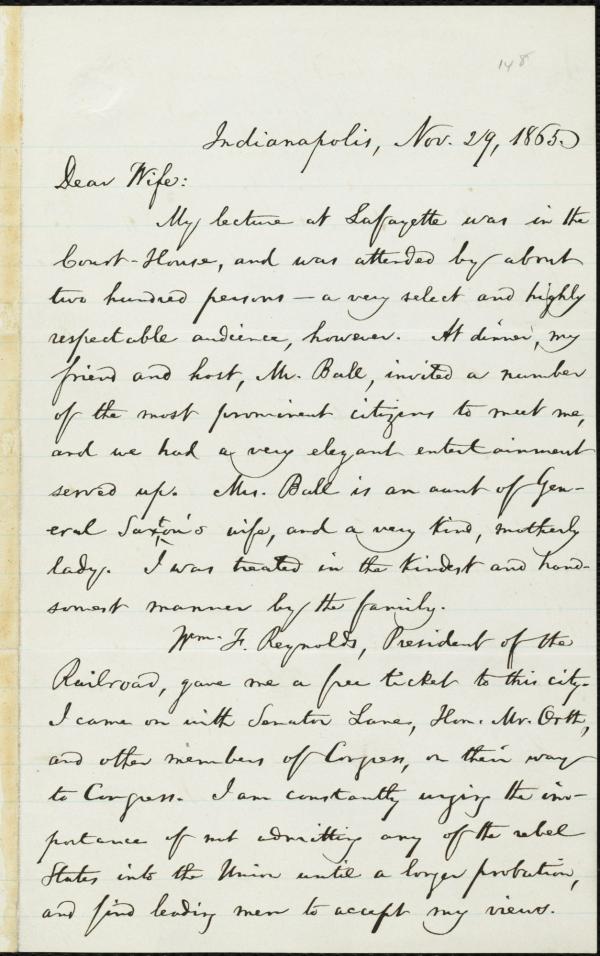 148
Indianapolis, Nov. 29, 1865.
Dear Wife:
My lecture at Lafayette was in the
Court-House, and was attended by about
two hundred persons — a very select and highly
respectable audience, however. At dinner, my
friend and host, Mr. Ball, invited a number
of the most prominent citizens to meet me,
and we had a very elegant entertainment
served up. Mrs. Ball is an aunt of Gen-
eral Saxton's wife, and a very kind, motherly
lady. I was treated in the kindest and hand-
somest manner by the family.
Wm. F. Reynolds, President of the
Railroad, gave me a free ticket to this city.
I came on with Senator Lane, Hon. Mr. Orth,
and other members of Congress, on their way
to Congress. I am constantly urging the im-
portance of not admitting any of the rebel
States into the Union until a longer probation,
and find leading men to accept my views.